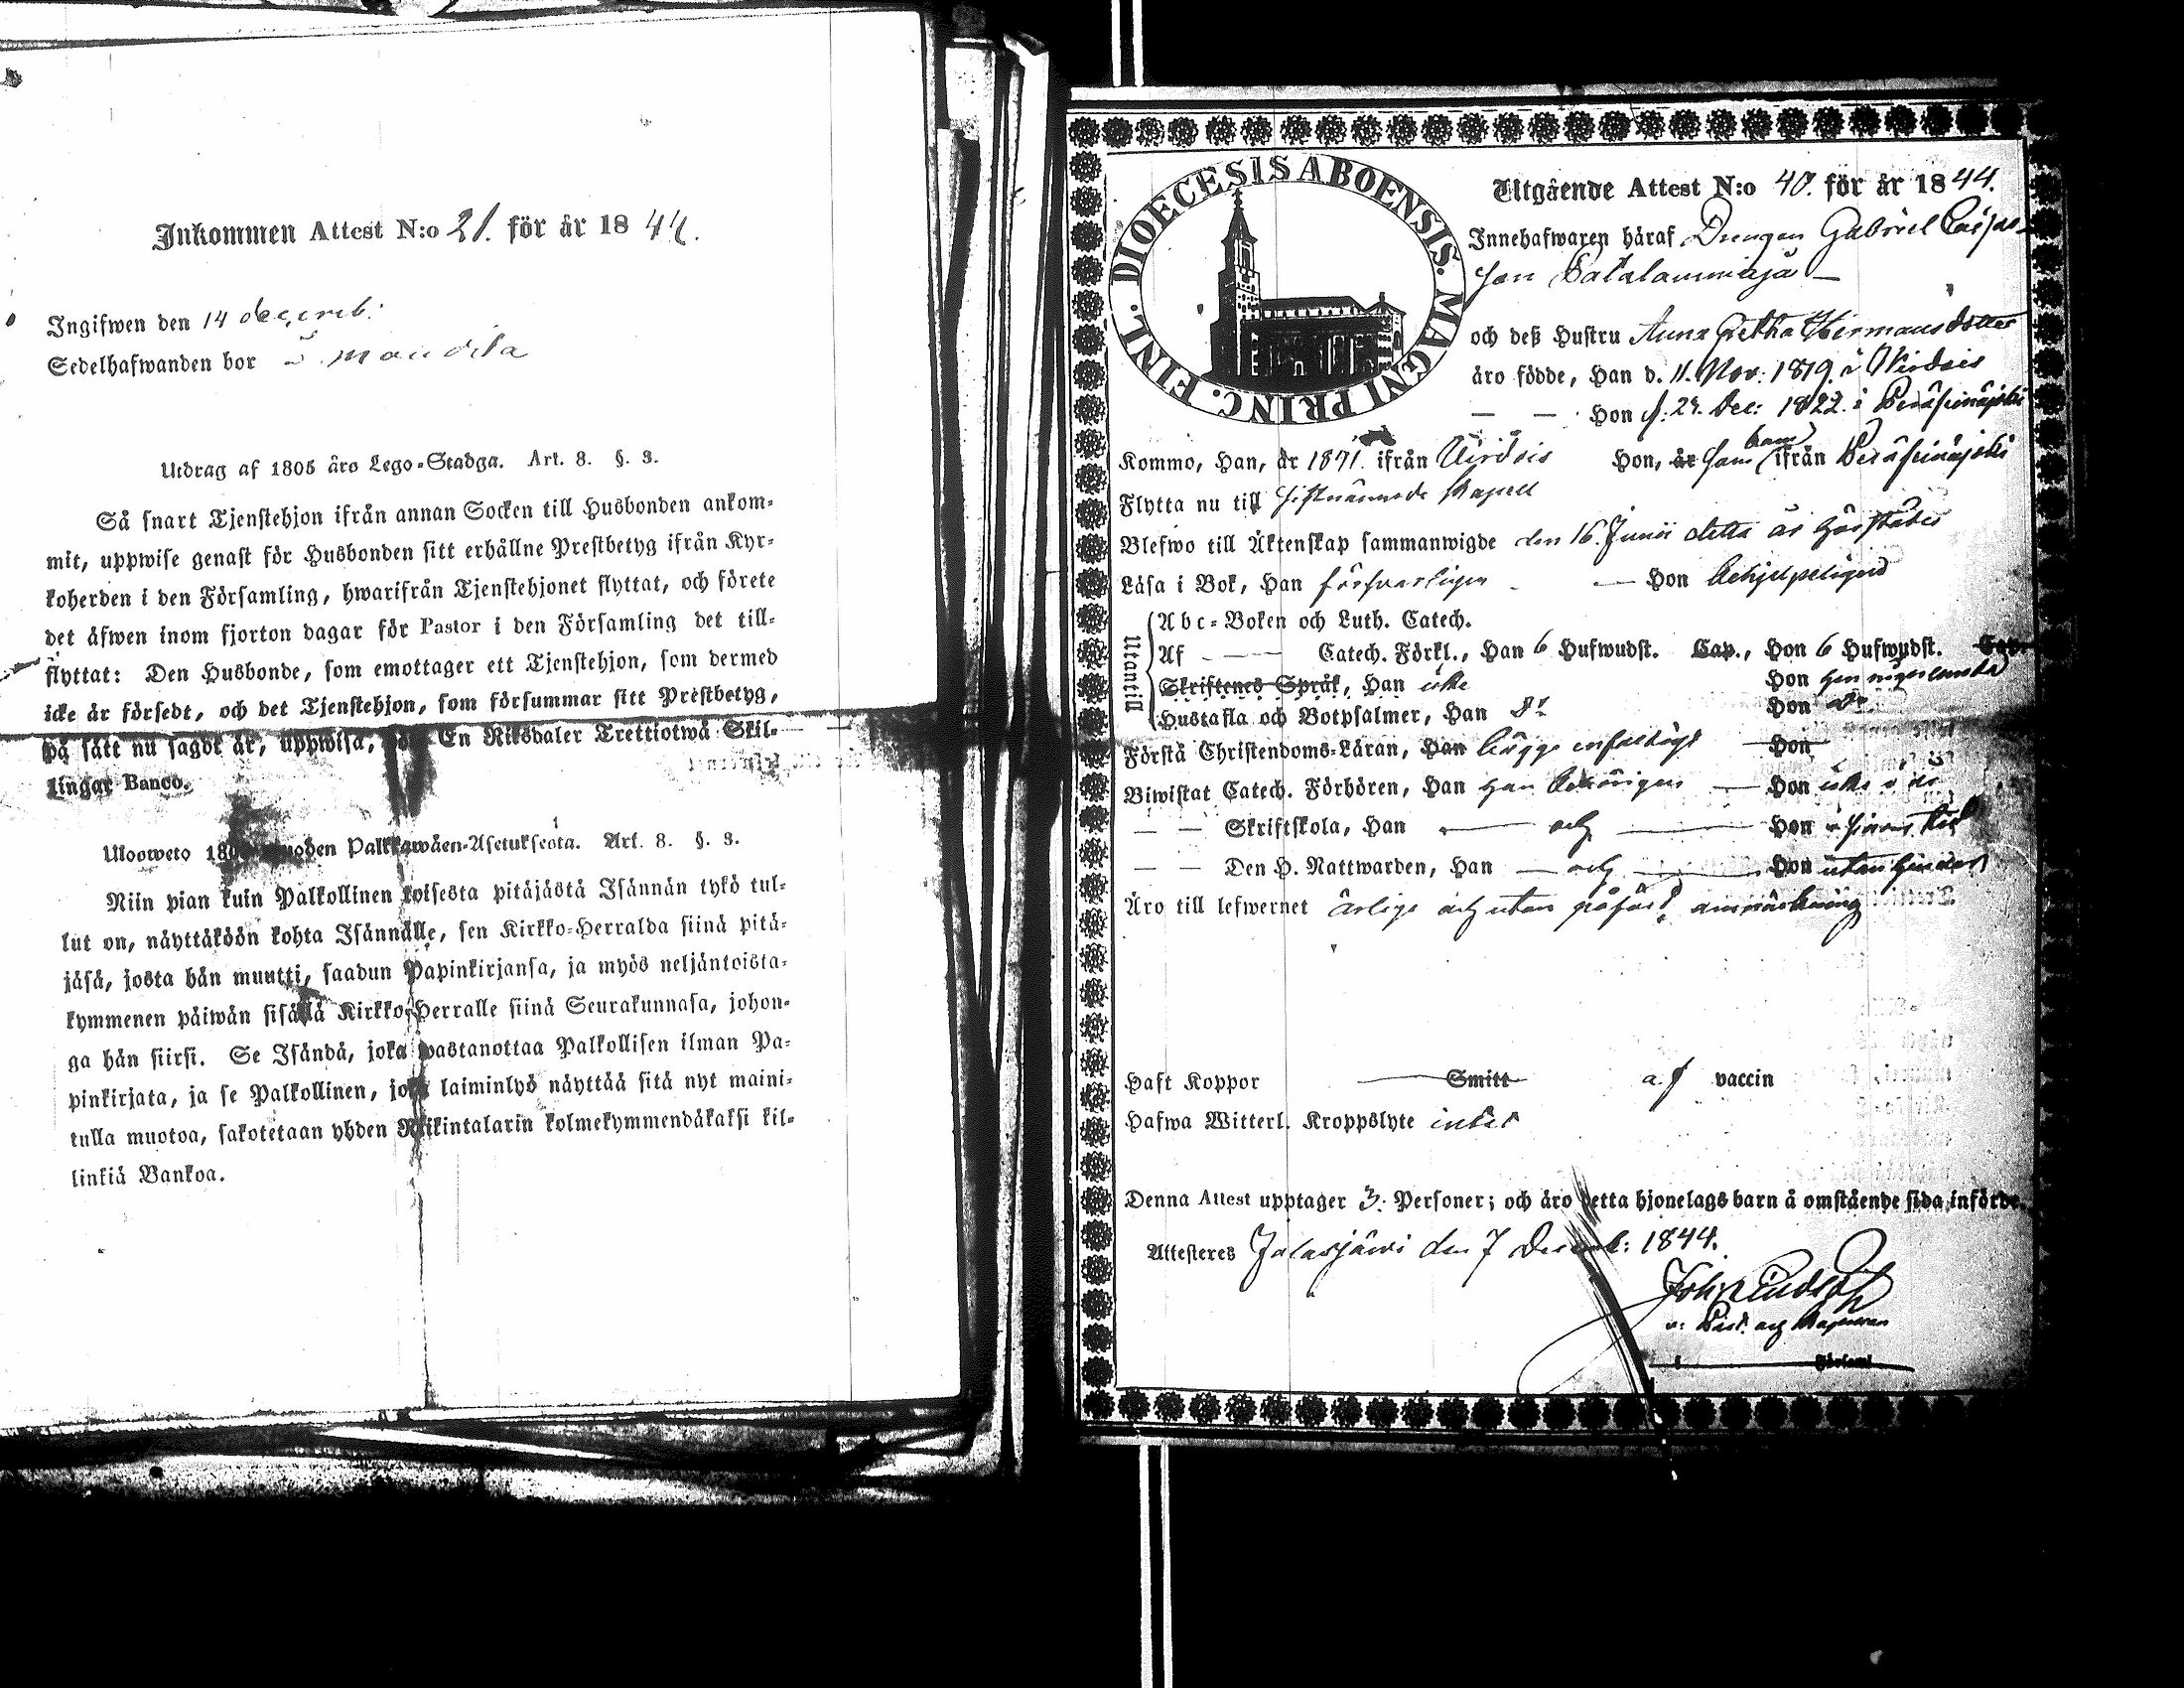 Inkommen Attest N:o 21. för år 1844.
Ingifwen den 14 decemb.
Sedelhafwanden bor
Utdrag af 1805 års Lego-Stadga. Art. 8. §. 3.
Så snart Tjenstehjon ifrån annan Socken till Husbonden ankom-
mit, uppwise genast för Husbonden sitt erhållne Prestbetyg ifrån Kyr-
koherden i den Församling, hwarifrån Tjenstehjonet flyttat, och förete
det äfwen inom fjorton dagar för Pastor i den Församling det till-
flyttat: Den Husbonde, som emottager ett Tjenstehjon, som dermed
icke är försedt, och det Tjenstehjon, som försummar sitt Prestbetyg,
på sätt nu sagdt är, uppwisa, En Riksdaler Trettiotwå Skil-
lingar Banco.
Ulosweto muoden Palkkawäen-Asetuksesta. Art. 8. §. 3.
Niin pian kuin Palkollinen toisesta pitäjästä Isännän tykö tul-
lut on, näyttäköön kohta Isännälle, sen Kirkko-Herralda siinä pitä-
jäsä, josta hän muutti, saadun Papinkirjansa, ja myös neljäntoista-
kymmenen päiwän sisällä Kirkko-Herralle siinä Seurakunnasa, johon-
ga hän siirsi. Se Isändä, joka wastanottaa Palkollisen ilman Pa-
pinkirjata, ja se Palkollinen, joka laiminlyö näyttää sitä nyt maini-
tulla muotoa, sakotetaan yhden Riikintalarin kolmekymmendäkaksi kil-
linkiä Bankoa.
DIOECESIS ABOENSIS. MAGNI PRINC. FINL.
Utgående Attest N:o 40. för år 1844.
Innehafwaren häraf Drengen Gabriel Caspers
son
och deß Hustru Anna Gretha Hermansdotter
äro födde, Han d. 11. Nov: 1819. i Wirdois
— — Hon d. 29. Dec: 1822. i Peräseinäjoki
Kommo, Han, år 1841. ifrån Virdois Hon, år ifrån Peräseinäjoki
Flytta nu till sistnämnde Kapell
Blefwo till Äktenskap sammanwigde den 16. Junii detta år härstädes
Läsa i Bok, Han försvarligen — Hon behjelpeligen
Utantill
Abc-Boken och Luth. Catech.
Af — Catech. Förkl., Han 6 Hufwudst. Cap., Hon 6 Hufwudst. Cap.
Skriftenes Språk, Han icke Hon
Hustafla och Botpsalmer, Han Do Hon Do
Första Christendoms-Läran, Han begge enfaldigt — Hon
Biwistat Catech. Förhören, Han — Hon
— — Skriftskola, Han — och — Hon
— — Den H. Nattwarden, Han — och — Hon utan hinder
Äro till lefwernet ärlige och utan anmärkning
Haft Koppor — Smitt a.f vaccin
Hafwa Witterl. Kroppslyte intet
Denna Attest upptager 3. Personer; och äro detta hjonelags barn å omstående sida införde.
Attesteres Jalasjärvi den 7 Decemb: 1844.
v. Past. och Kapellan
i Församl